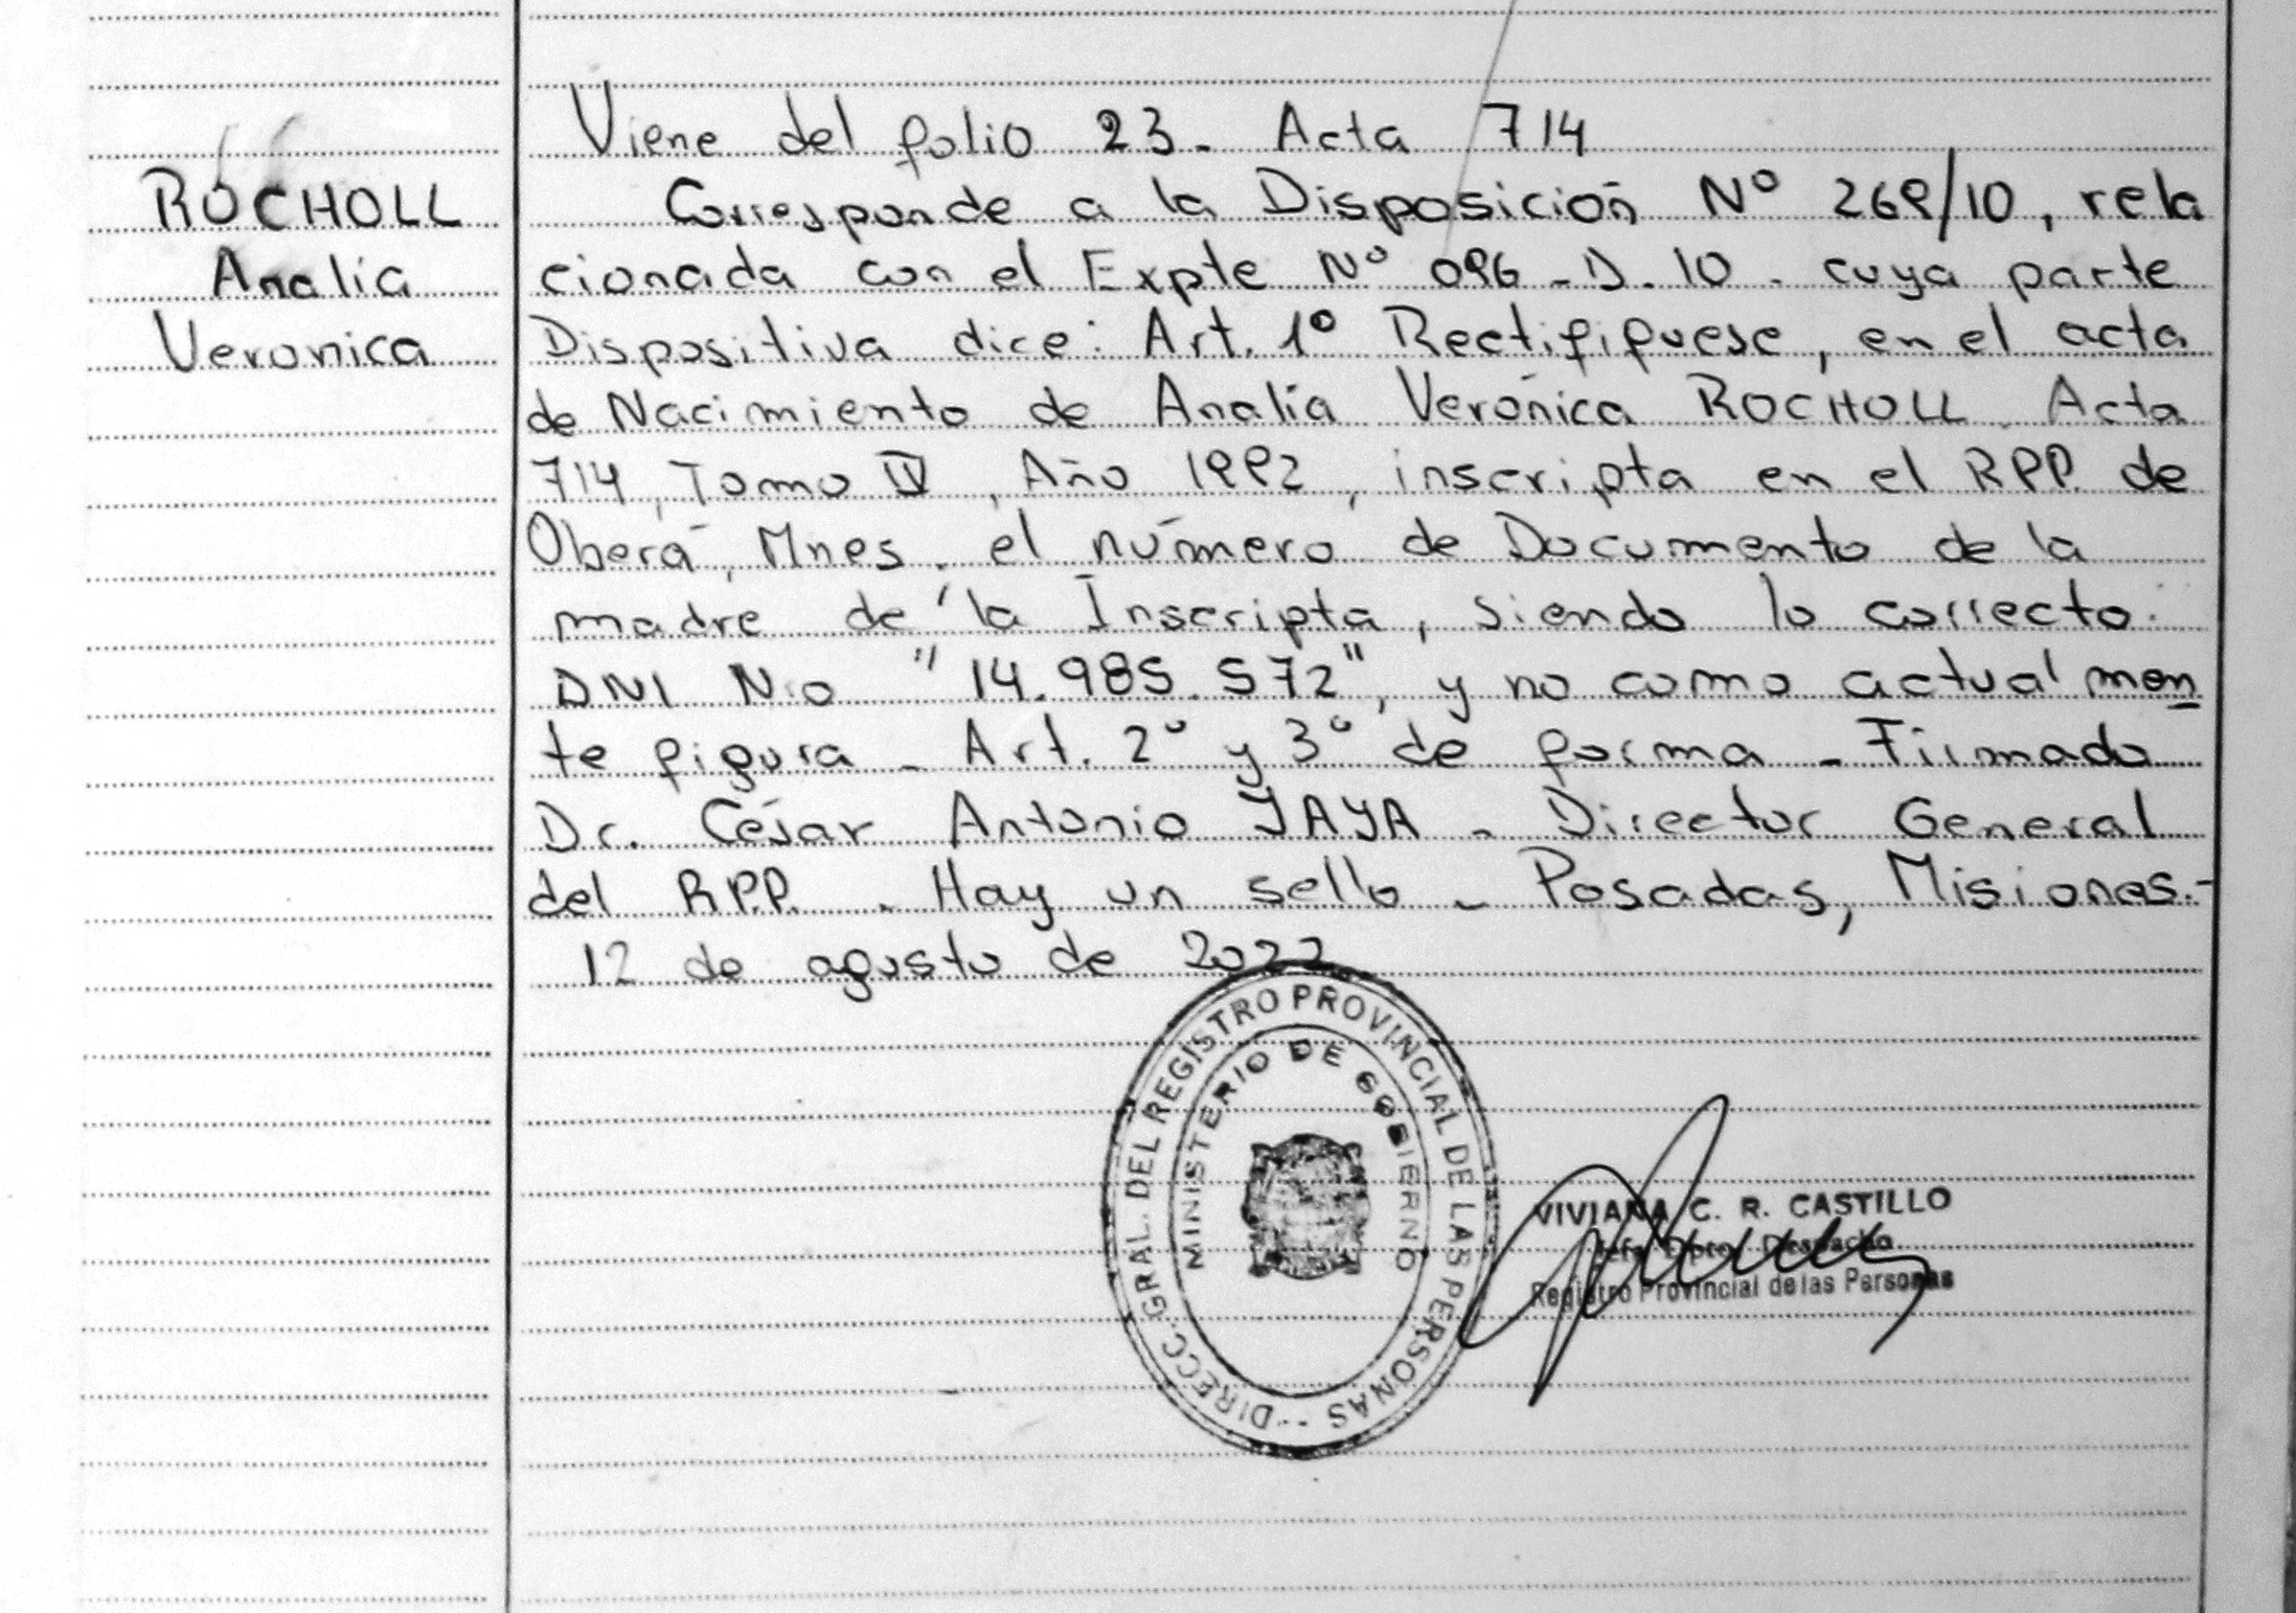 ROCHOLL
Analía
Veronica
Viene del folio 23. Acta 714
Corresponde a la Disposición Nº 269/10, rela
cionada con el Expte Nº 096-D.10. cuya parte
Dispositiva dice: Art. 1º Rectififuese, en el acta
de Nacimiento de Analía Verónica ROCHOLL. Acta
714, Tomo IV, Año 1992, inscripta en el RPP. de
Oberá, Mnes. el número de Documento de la
madre de la Inscripta, siendo lo correcto:
DNI N.o "14.985.572", y no como actual men
te figura - Art. 2º y 3º de forma - Firmado
Dr. César Antonio JAYA - Director General
del R.P.P. - Hay un sello - Posadas, Misiones.-
12 de agosto de 2022
DIRECC. GRAL. DEL REGISTRO PROVINCIAL DE LAS PERSONAS
MINISTERIO DE GOBIERNO
VIVIANA C. R. CASTILLO
Jefe Dpto. Despacho
Registro Provincial de las Personas